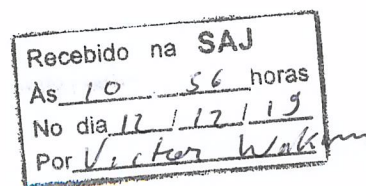 Recebido na SAJ
Às 10 56 horas
No dia 12 / 12 / 19
Por Victor